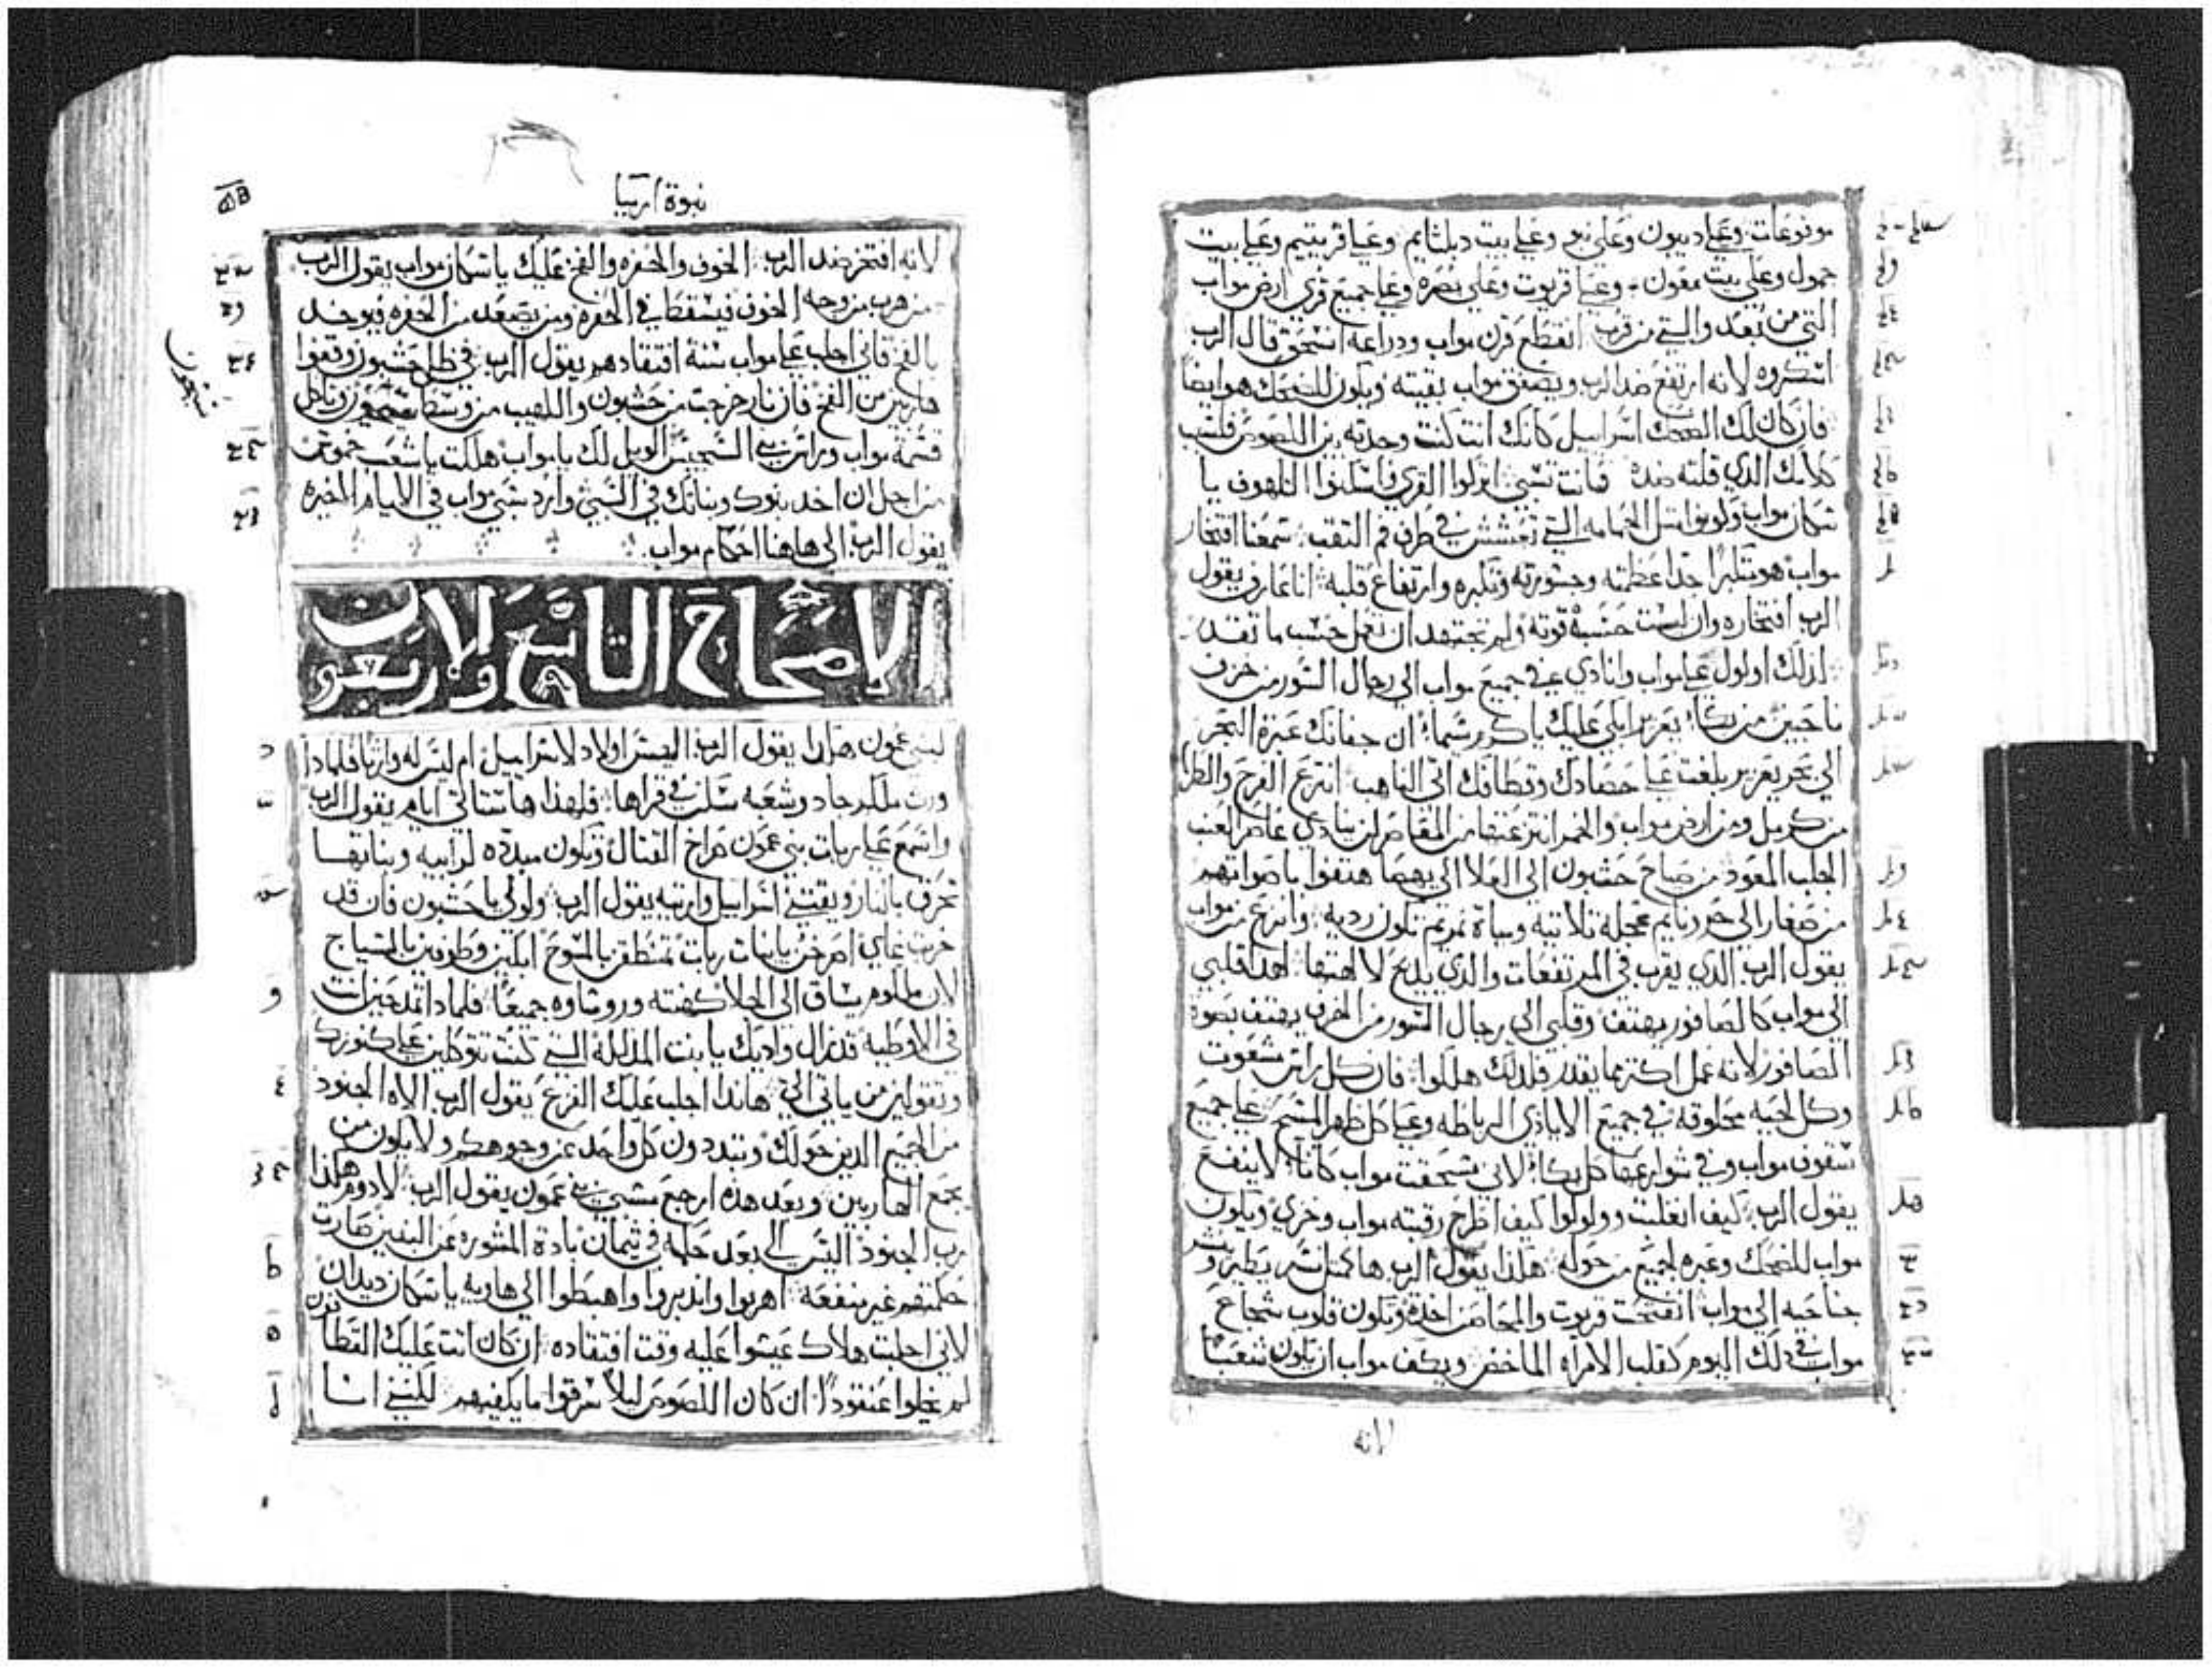 موفوعات: وعلي ديبون وعلي نبو وعلي بيت دبلثايم وعلي قريثيم وعلي بيت
جمول وعلي بيت معون وعلي قريوت وعلي بصره وعلي جميع قري ارض مواب
التي من بعد والتي من قرب انقطع قرن مواب ودراعه انسحق قال الرب
اسكروه لانه ارتفع ضد الرب ويصفق مواب بقيته ويكون للضحك هو ايضا
فان كان لك الضحك اسراييل كانك انت كنت وجدته بين اللصوص فلسبب
كلامك الذي قلته ضده فانت تسبي اتركوا القري واسكنوا الكهوف يا
سكان مواب وكونوا مثل الحمامه التي تعشش في طرف فم النقب: سمعنا افتخار
مواب هو متكبرا جدا عظمته وجسورته وتكبره وارتفاع قلبه: انا عارف يقول
الرب افتخاره وان ليست حسبه قوته ولم يجتهد ان تعمل حسب ما تقدر
لذلك اولول علي مواب وانادي في جميع مواب الي رجال السور من خزف
ناحبين من بكاء يعزير ابكي عليك يا كرم شبماء ان جفانك عبرة البحر
الي بحر يعزير بلغت علي حصادك وقطافك اتي الناهب انتزع الفرح والطرب
من كرمل ومن ارض مواب والخمر انتزعتها من المعاصر لن ينادي عاصر العنب
الجلب المعود من صياح حشبون الي العلا الي يهصا هتفوا باصواتهم
من صغار الي حورونايم عجله ثلاثيه ومياة نمريم تكون رديه وانزع من مواب
يقول الرب الذي يقرب في المرتفعات والذي يذبح لالهتها لهذا قلبي
الي مواب كالصافور يهتف وقلبي الي رجال السور من الخزف يهتف بصوة
الصافور لانه عمل اكتر مما يقدر فلذلك هلكوا: فان كل راس شعوت
وكل لحيه محلوقه في جميع الايادي الرباطه وعلي كل ظهر المسح علي جميع
سقوف مواب وفي شوارعها كل بكاء لاني سحقت مواب كاناء لا ينفع
يقول الرب: كيف انغلبت وولولوا كيف اطرح رقبته مواب وخزي ويكون
مواب للضحك وعبره لجميع من حوله: هكذا يقول الرب ها كمثل نسر يطير وينشر
جناحيه الي مواب انفتحت قريوت والمحاصن اخذة وتكون قلوب شجاع
مواب في ذلك اليوم كقلب الامراه الماخض ويكف مواب ان يكون شعبا
لانه
نبوة ارميا
لانه افتخر ضد الرب: الخوف والحفره والفخ عليك يا سكان مواب يقول الرب
من هرب من وجه الخوف فيسقط في الحفره ومن يصعد من الحفره فيوخد
بالفخ فاني اجلب علي مواب سنة افتقادهم يقول الرب: في ظل حشبون وقفوا
هاربين من الفخ فان نار خرجت من حشبون واللهيب من وسط سيحون وتاكل
قسمة مواب وراس بني السجيس الويل لك يا مواب هلكت يا شعب خموش
من اجل ان اخد بنوك وبناتك في السبي وارد سبي مواب في الايام الاخيره
يقول الرب: الي هاهنا احكام مواب
سيحون
الاصحاح التاسع والاربعون
لبني عمون هكذا يقول الرب: اليس اولاد لاسراييل ام ليس له وارثا فلماذا
ورث ملكم جاد وشعبه سكن في قراها: فلهذا ها ستاتي ايام يقول الرب
واسمع علي ربات بني عمون صراخ القتال وتكون مبدده لرابيه وبناتها
تحرق بالنار ويقتني اسراييل وارتيه يقول الرب: ولولي يا حشبون فان قد
خربت عاي اصرخن يا بنات ربات تمنطقن بالمسوح ابكين وطوفين بالسياج
لان ملكوم يساق الي الجلا كهنته وروساوه جميعا: فلماذا تمدحين انت
في الاوطيه قد نزال واديك يا بنت المدلله التي كنت تتوكلين علي كنوزك
وتقولين من ياتي الي: هانذا اجلب عليك الفزع يقول الرب الاه الجنود
من الجميع الذين حولك وتبددون كل واحد عن وجوهكم ولا يكون من
يجمع الهاربين وبعد هذه ارجع مسبي بني عمون يقول الرب: لادوم هكذا
رب الجنود اليس الي بعد حكمه في تيمان بادة المشوره عن البنين صارت
حكمتهم غير منفعة: اهربوا وانديروا واهبطوا الي هاويه يا سكان ديدان
لاني اجلبت هلاك عيسوا عليه وقت افتقاده: ان كان اتت عليك القطافون
لم يخلوا عنقودا: ان كان اللصوص ليلا سرقوا ما يكفيهم لكنني انا